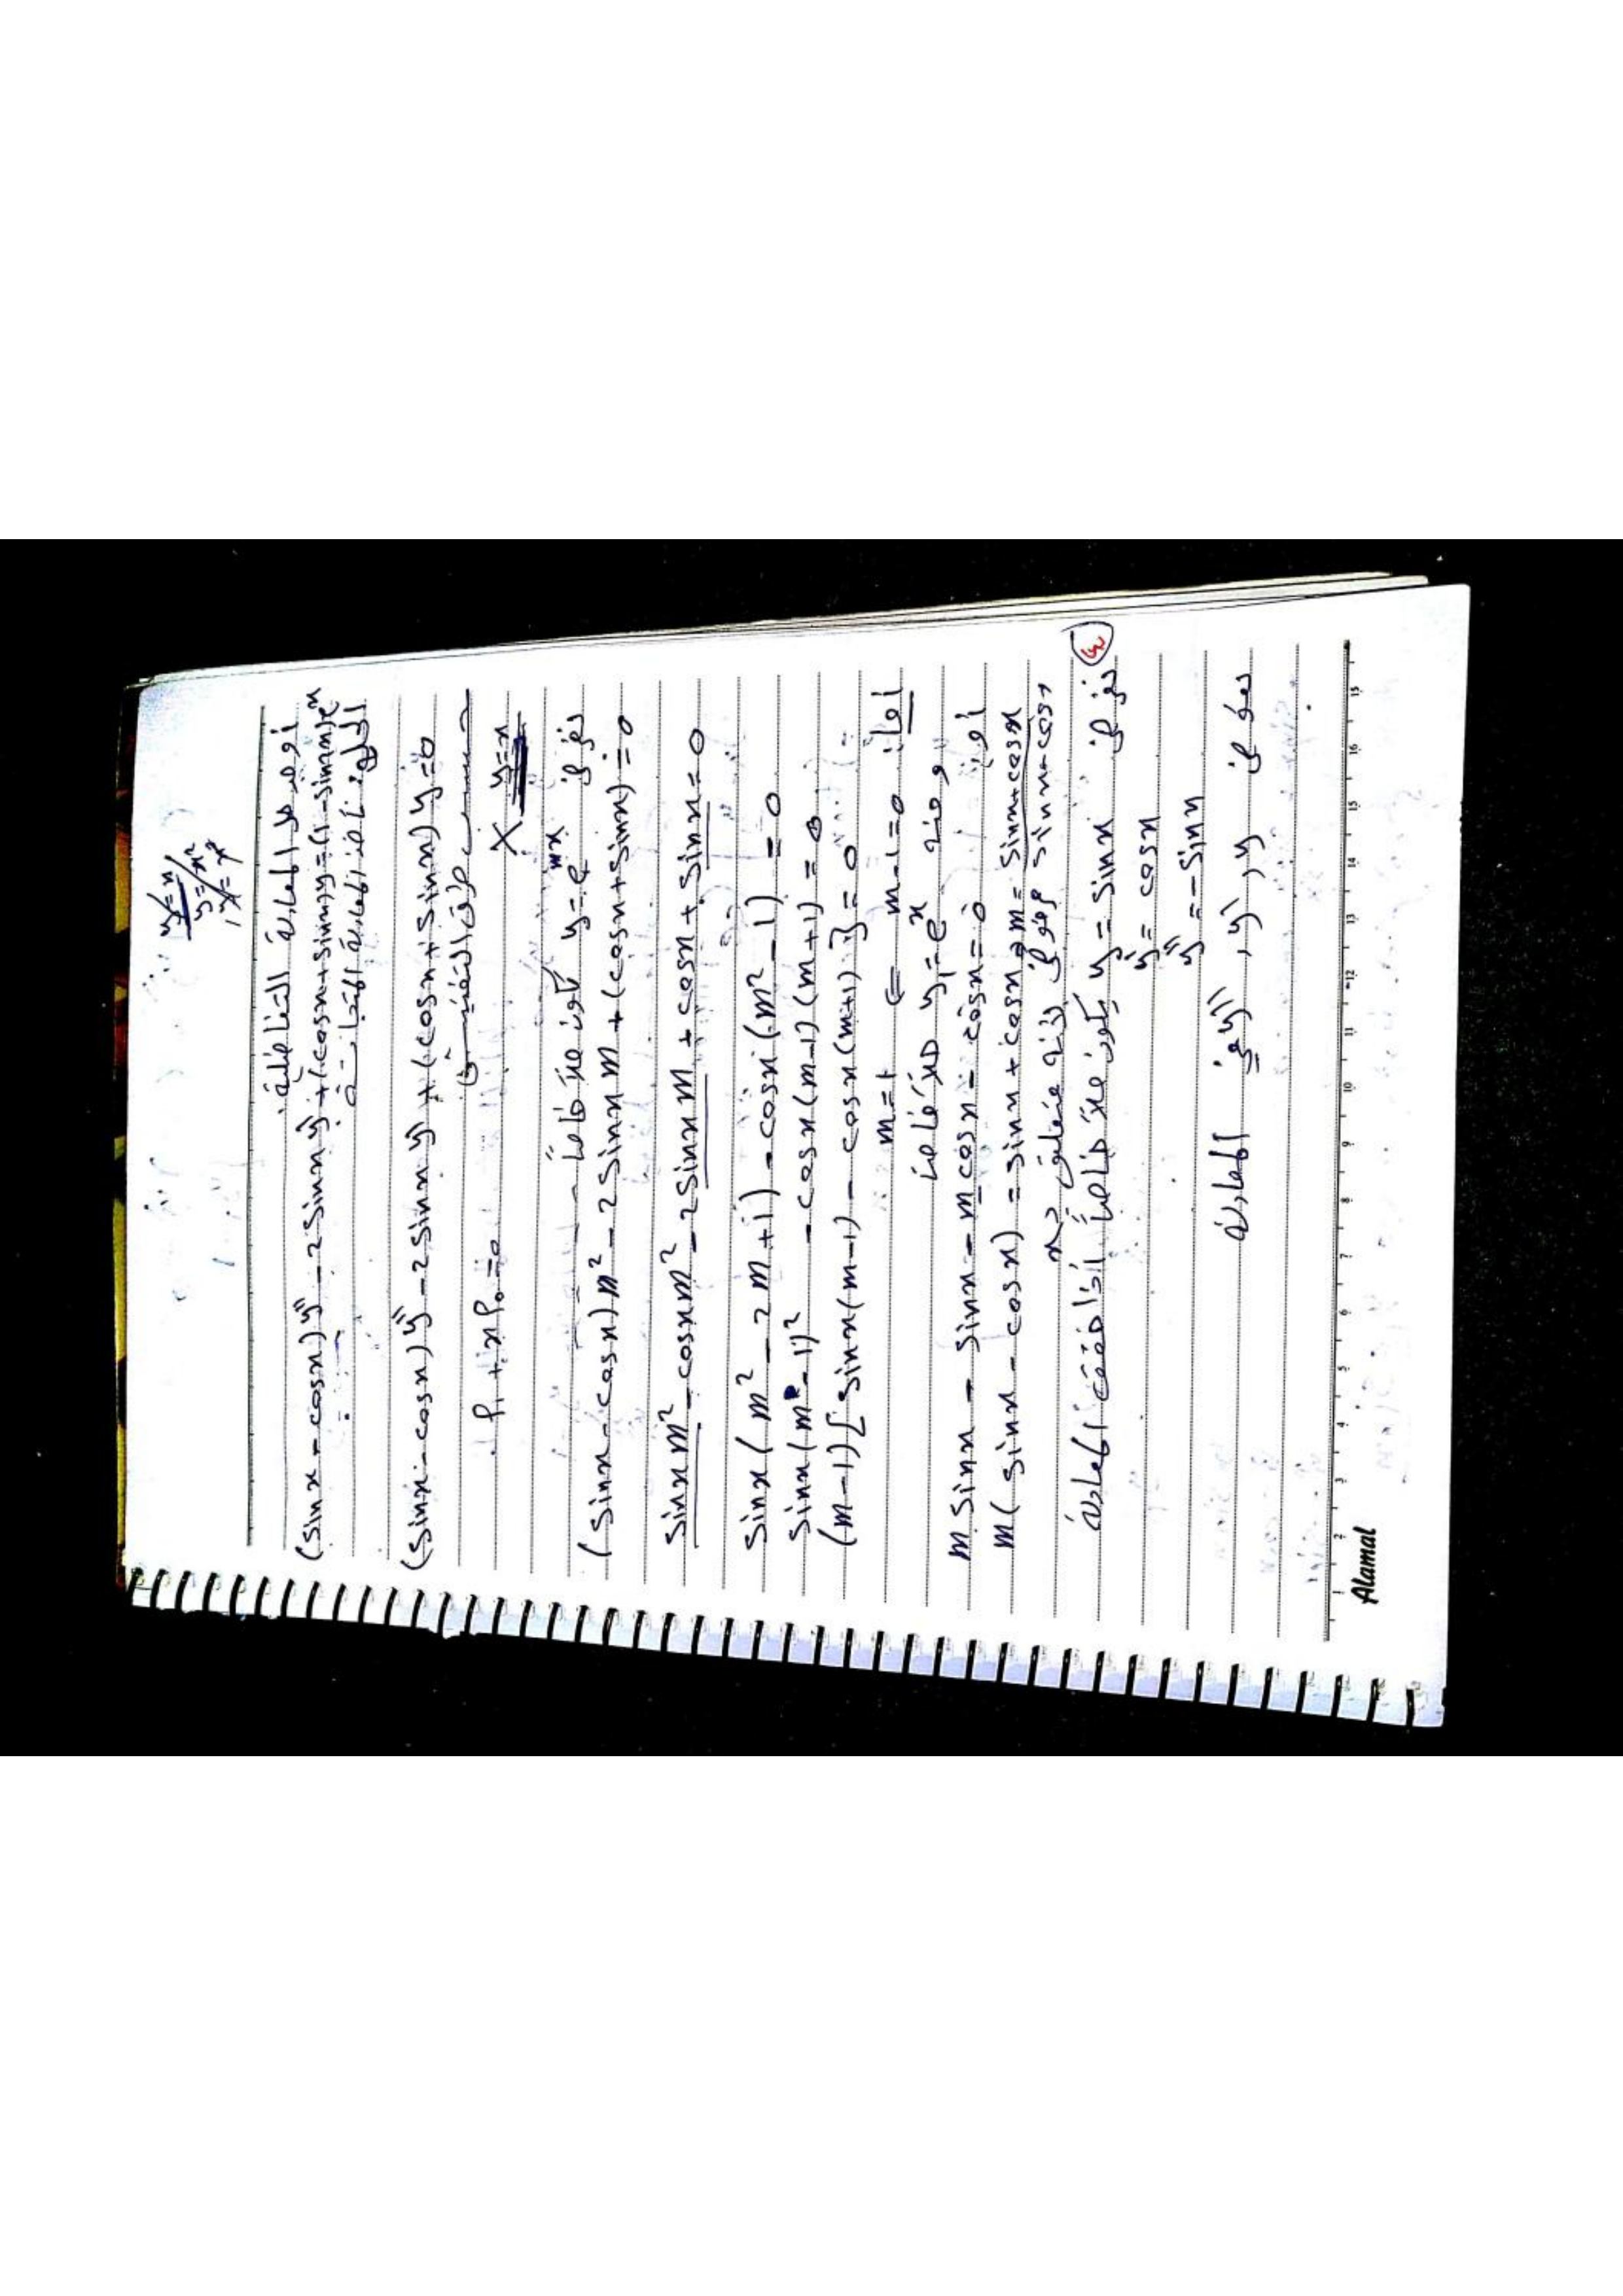 y=x
y=x²
أوجد حل المعادلة التفاضلية
(sinx - cosx)y'' - 2sinx y' + (cosx + sinx)y = (1 - sinx)eˣ
الحل: نأخذ المعادلة المتجانسة
(sinx - cosx)y'' - 2sinx y' + (cosx + sinx)y = 0
P₁ + xP₀ = 0 X y=x
نفرض y = e^mx يكون حلاً خاصاً
(sinx - cosx)m² - 2sinx m + (cosx + sinx) = 0
sinx m² - cosx m² - 2sinx m + cosx + sinx = 0
sinx(m² - 2m + 1) - cosx(m² - 1) = 0
sinx(m - 1)² - cosx(m-1)(m+1) = 0
(m-1)[sinx(m-1) - cosx(m+1)] = 0
أما: m-1=0 ⇐ m=1
ومنه y₁ = eˣ حلاً خاصاً
أو: m sinx - sinx - m cosx - cosx = 0
m(sinx - cosx) = sinx + cosx ⇒ m = sinx+cosx / sinx-cosx
مرفوض لأنه متعلق بـ x
نفرض y = sinx يكون حلاً خاصاً إذا حققت المعادلة
y' = cosx
y'' = -sinx
نعوض y, y', y'' في المعادلة
1 2 3 4 5 6 7 8 9 10 11 12 13 14 15 16 15
Alamal